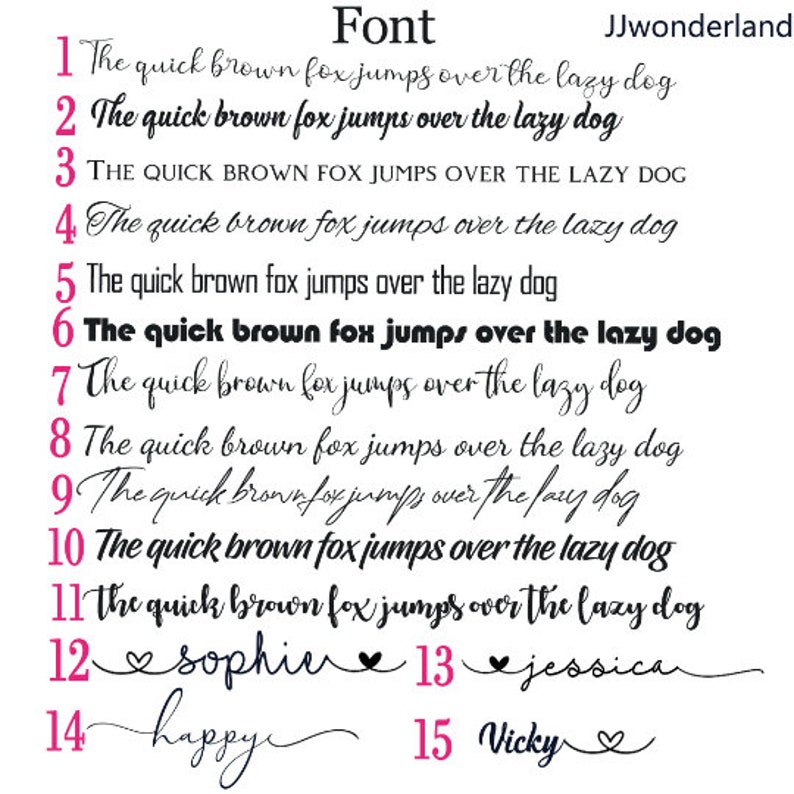 Font
JJwonderland
1 The quick brown fox jumps over the lazy dog
2 The quick brown fox jumps over the lazy dog
3 THE QUICK BROWN FOX JUMPS OVER THE LAZY DOG
4 The quick brown fox jumps over the lazy dog
5 The quick brown fox jumps over the lazy dog
6 The quick brown fox jumps over the lazy dog
7 The quick brown fox jumps over the lazy dog
8 The quick brown fox jumps over the lazy dog
9 The quick brown fox jumps over the lazy dog
10 The quick brown fox jumps over the lazy dog
11 the quick brown fox jumps over the lazy dog
12 sophie 13 jessica
14 happy 15 Vicky